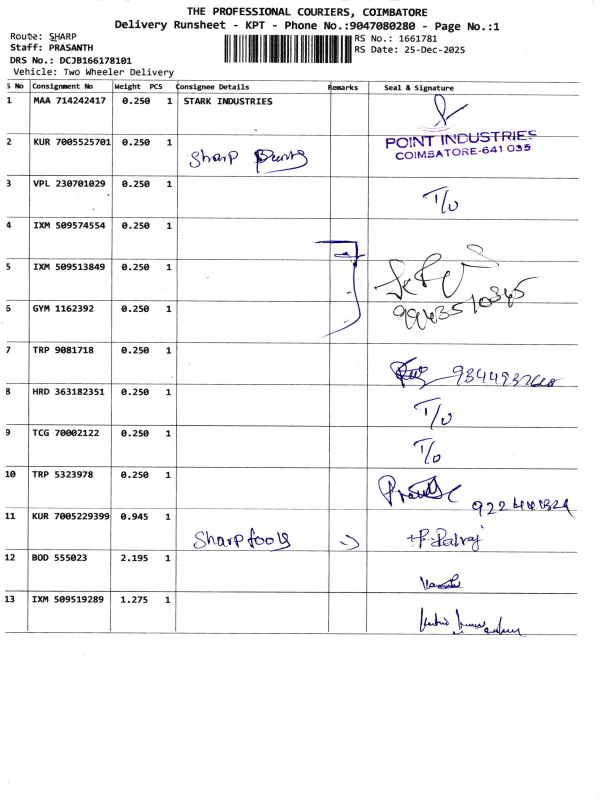 THE PROFESSIONAL COURIERS, COIMBATORE
Delivery Runsheet - KPT - Phone No.:9047080280 - Page No.:1
Route: SHARP
RS No.: 1661781
Staff: PRASANTH
RS Date: 25-Dec-2025
DRS No.: DCJB166178101
Vehicle: Two Wheeler Delivery
S No Consignment No Weight PCS Consignee Details Remarks Seal & Signature
1 MAA 714242417 0.250 1 STARK INDUSTRIES
2 KUR 7005525701 0.250 1 Sharp POINT INDUSTRIES
COIMBATORE-641 035
3 VPL 230701029 0.250 1 T/O
4 IXM 509574554 0.250 1
5 IXM 509513849 0.250 1
9943510345
6 GYM 1162392 0.250 1
7 TRP 9081718 0.250 1
8 HRD 363182351 0.250 1 T/O
9 TCG 70002122 0.250 1 T/O
10 TRP 5323978 0.250 1
11 KUR 7005229399 0.945 1 Sharp tools P. Palraj
12 BOD 555023 2.195 1
13 IXM 509519289 1.275 1